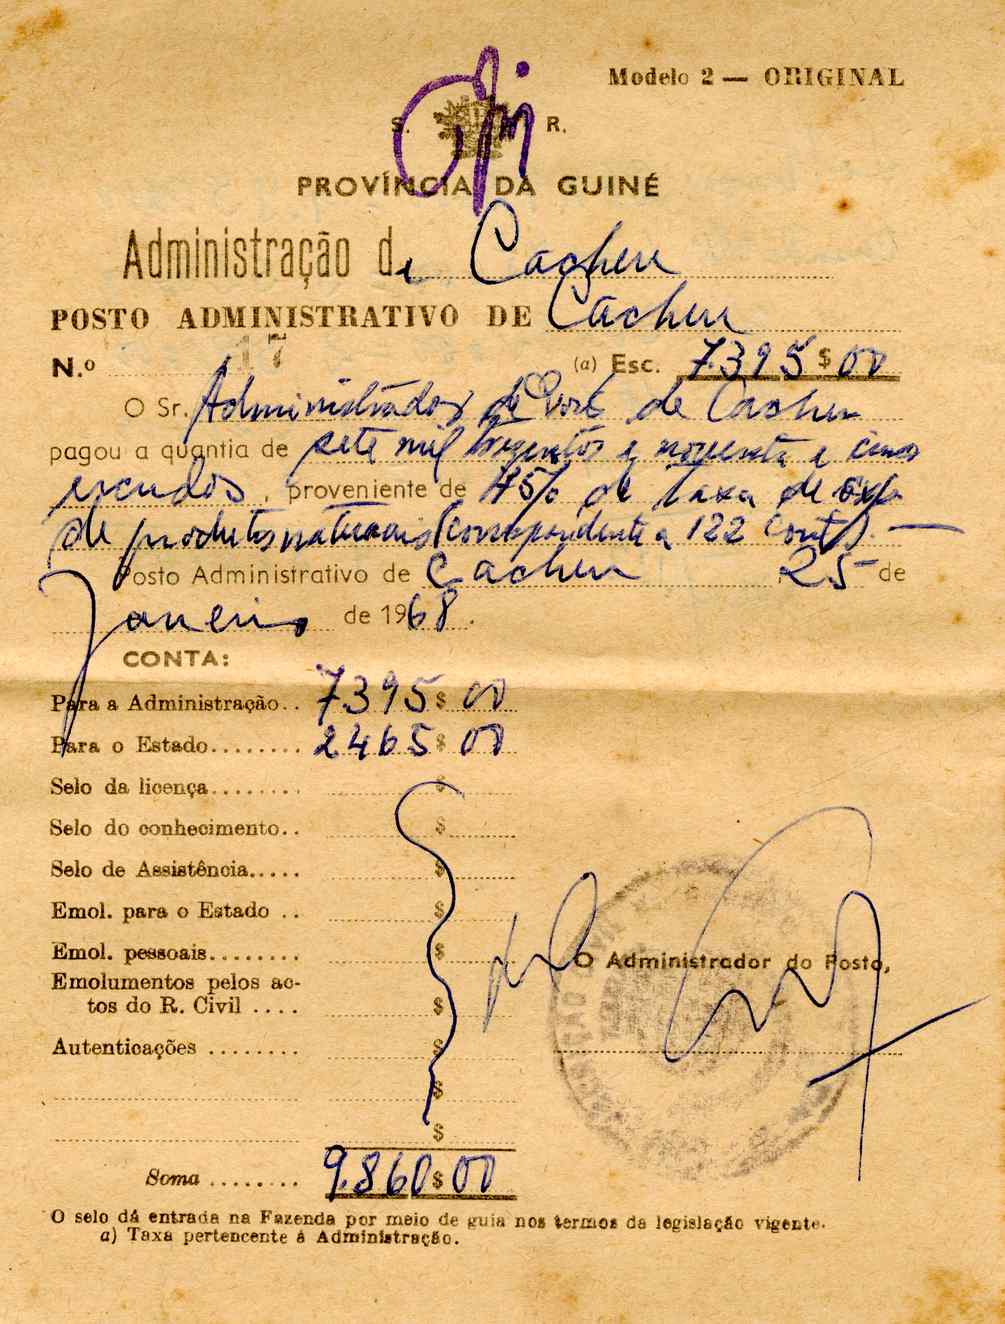 Modelo 2 — ORIGINAL
S. R.
PROVÍNCIA DA GUINÉ
Administração de Cacheu
POSTO ADMINISTRATIVO DE Cacheu
N.º 17 (a) Esc. 7.395$00
O Sr. Administrador de de Cacheu
pagou a quantia de sete mil trezentos e noventa e cinco
escudos, proveniente de 45% de Taxa de exp.
de produtos naturais (correspondente a 122 cont.). —
Posto Administrativo de Cacheu, 25 de
Janeiro de 1968.
CONTA:
Para a Administração.. 7395$00
Para o Estado........ 2465$00
Selo da licença........ $
Selo do conhecimento.. $
Selo de Assistência..... $
Emol. para o Estado .. $
Emol. pessoais........ $
O Administrador do Posto,
Emolumentos pelos ac-
tos do R. Civil .... $
Autenticações ........ $
$
$
Soma ........ 9.860$00
O selo dá entrada na Fazenda por meio de guia nos termos da legislação vigente.
a) Taxa pertencente à Administração.